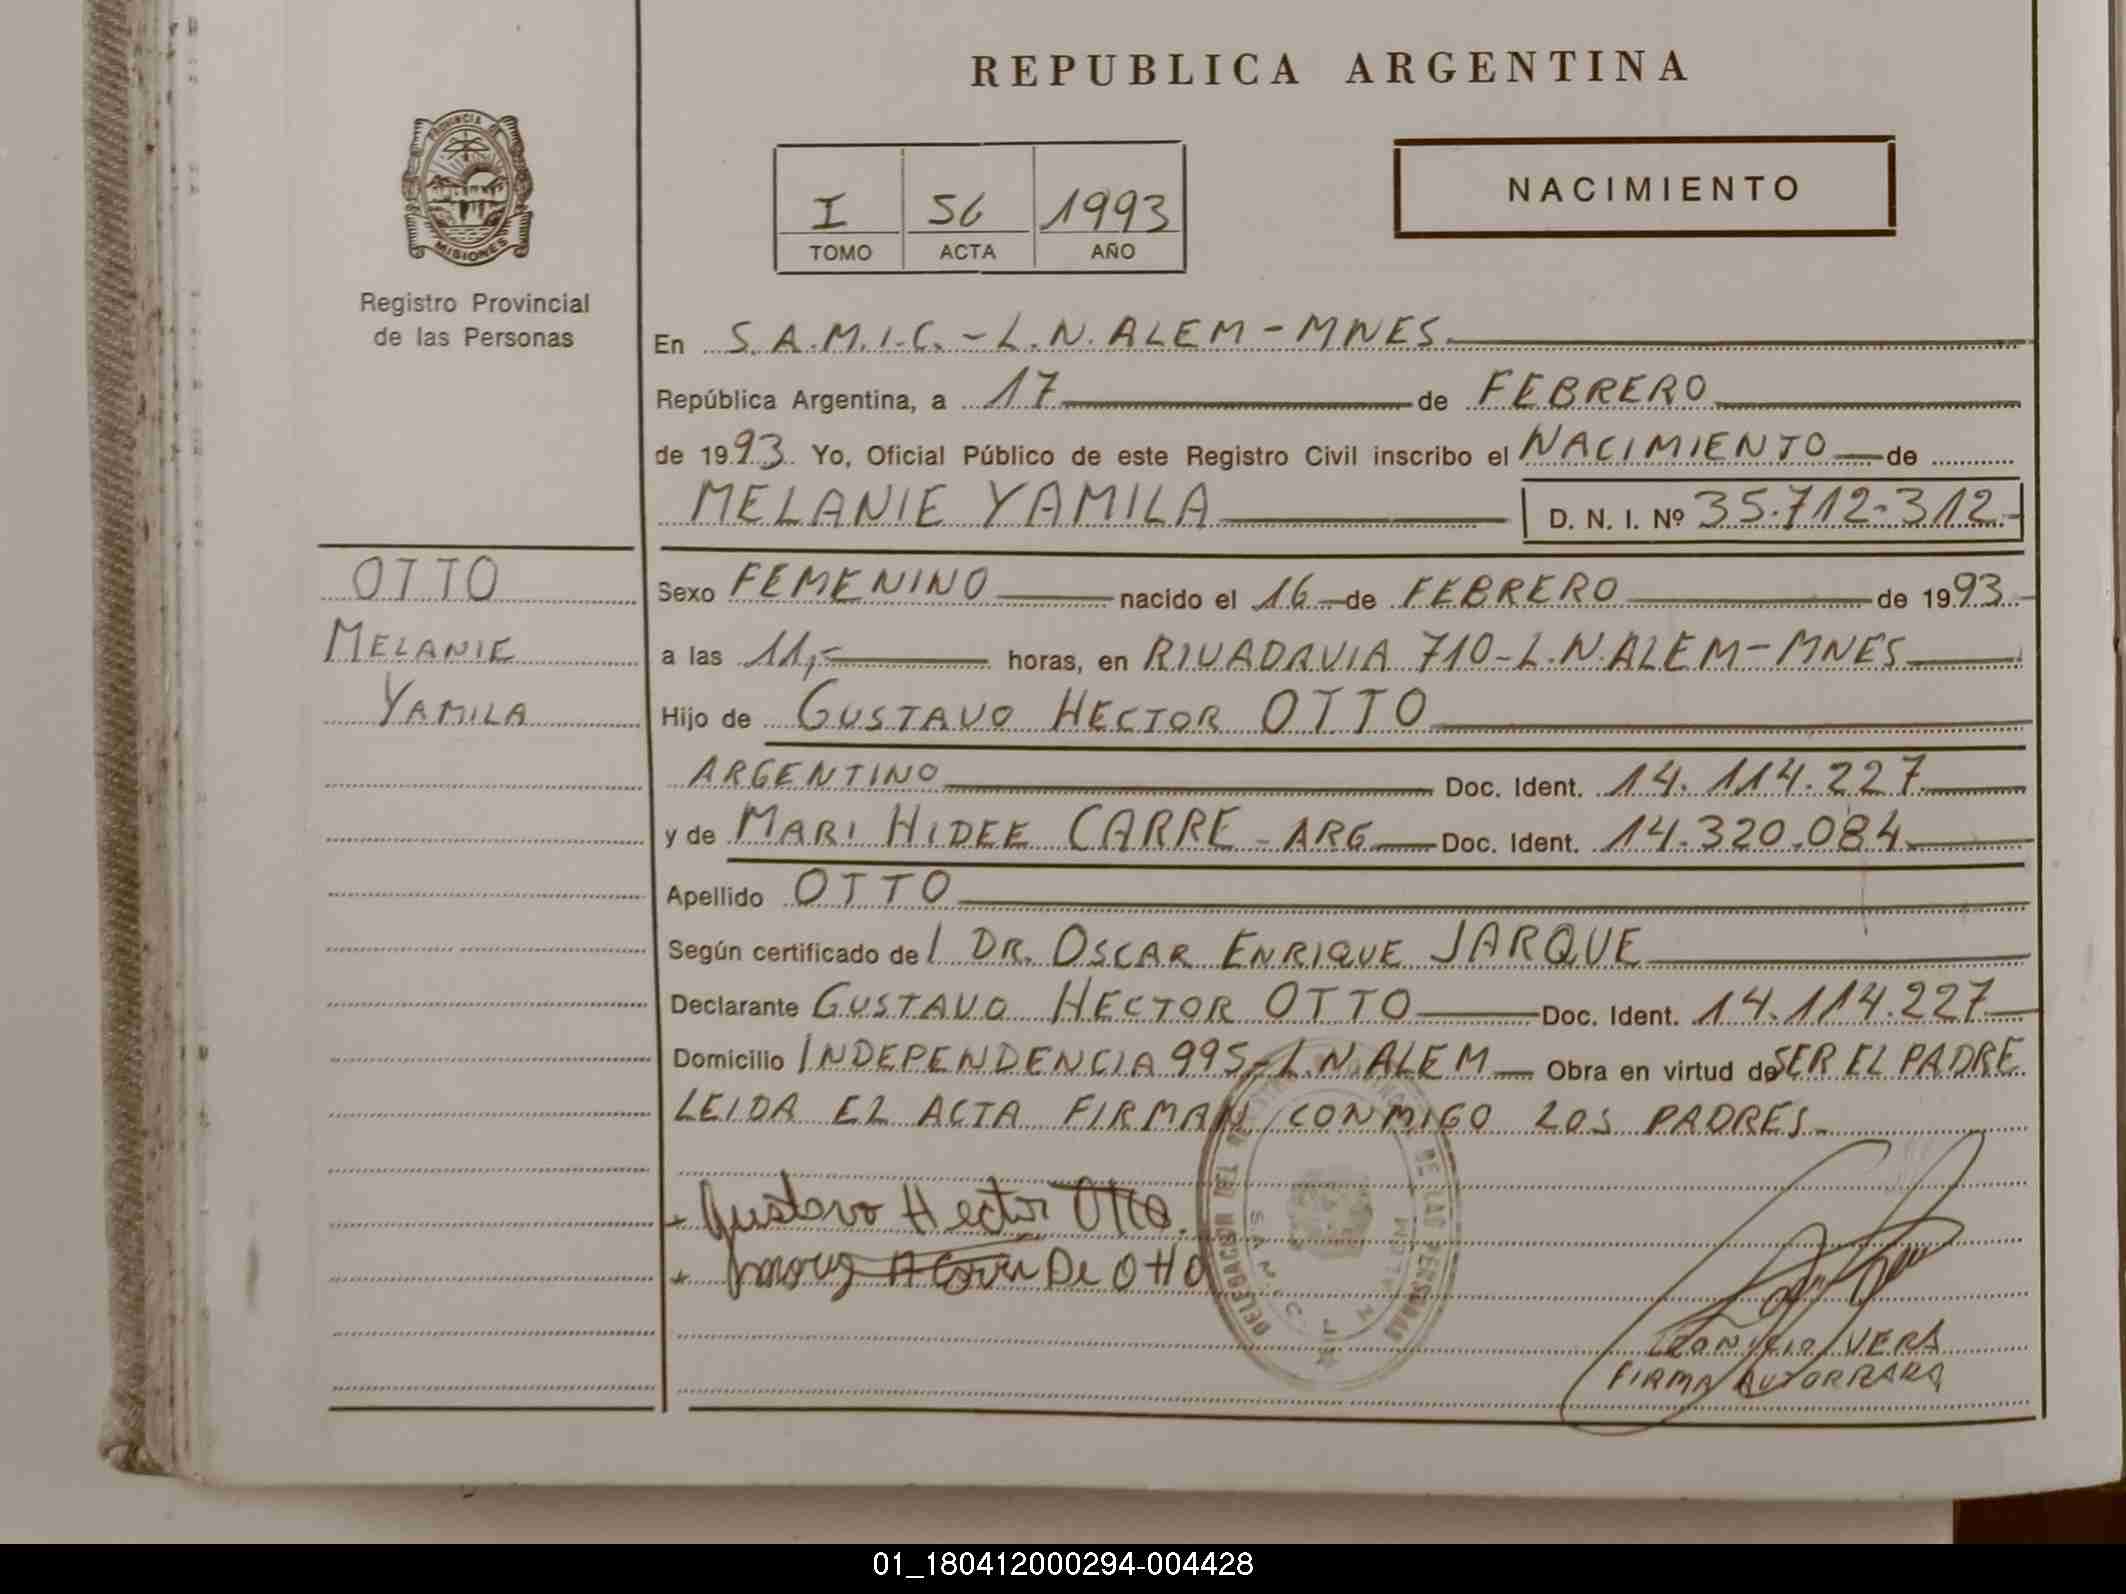 REPUBLICA ARGENTINA
PROVINCIA DE MISIONES
Registro Provincial
de las Personas
I 56 1993
TOMO ACTA AÑO
NACIMIENTO
En S.A.M.I.C. - L.N. ALEM - MNES.
República Argentina, a 17 de FEBRERO
de 1993 Yo, Oficial Público de este Registro Civil inscribo el NACIMIENTO de
MELANIE YAMILA D. N. I. Nº 35.712.312.-
OTTO
MELANIE
YAMILA
Sexo FEMENINO nacido el 16 de FEBRERO de 1993
a las 11,- horas, en RIVADAVIA 710 - L.N. ALEM - MNES
Hijo de GUSTAVO HECTOR OTTO
ARGENTINO Doc. Ident. 14.114.227
y de MARI HIDEE CARRE - ARG Doc. Ident. 14.320.084
Apellido OTTO
Según certificado del DR. OSCAR ENRIQUE JARQUE
Declarante GUSTAVO HECTOR OTTO Doc. Ident. 14.114.227
Domicilio INDEPENDENCIA 995 - L.N. ALEM Obra en virtud de SER EL PADRE
LEIDA EL ACTA FIRMAN CONMIGO LOS PADRES.-
Gustavo Hector Otto.
De Otto
DELEGACION DEL DE LAS PERSONAS
VERA
FIRMA AUTORRARA
01_180412000294-004428